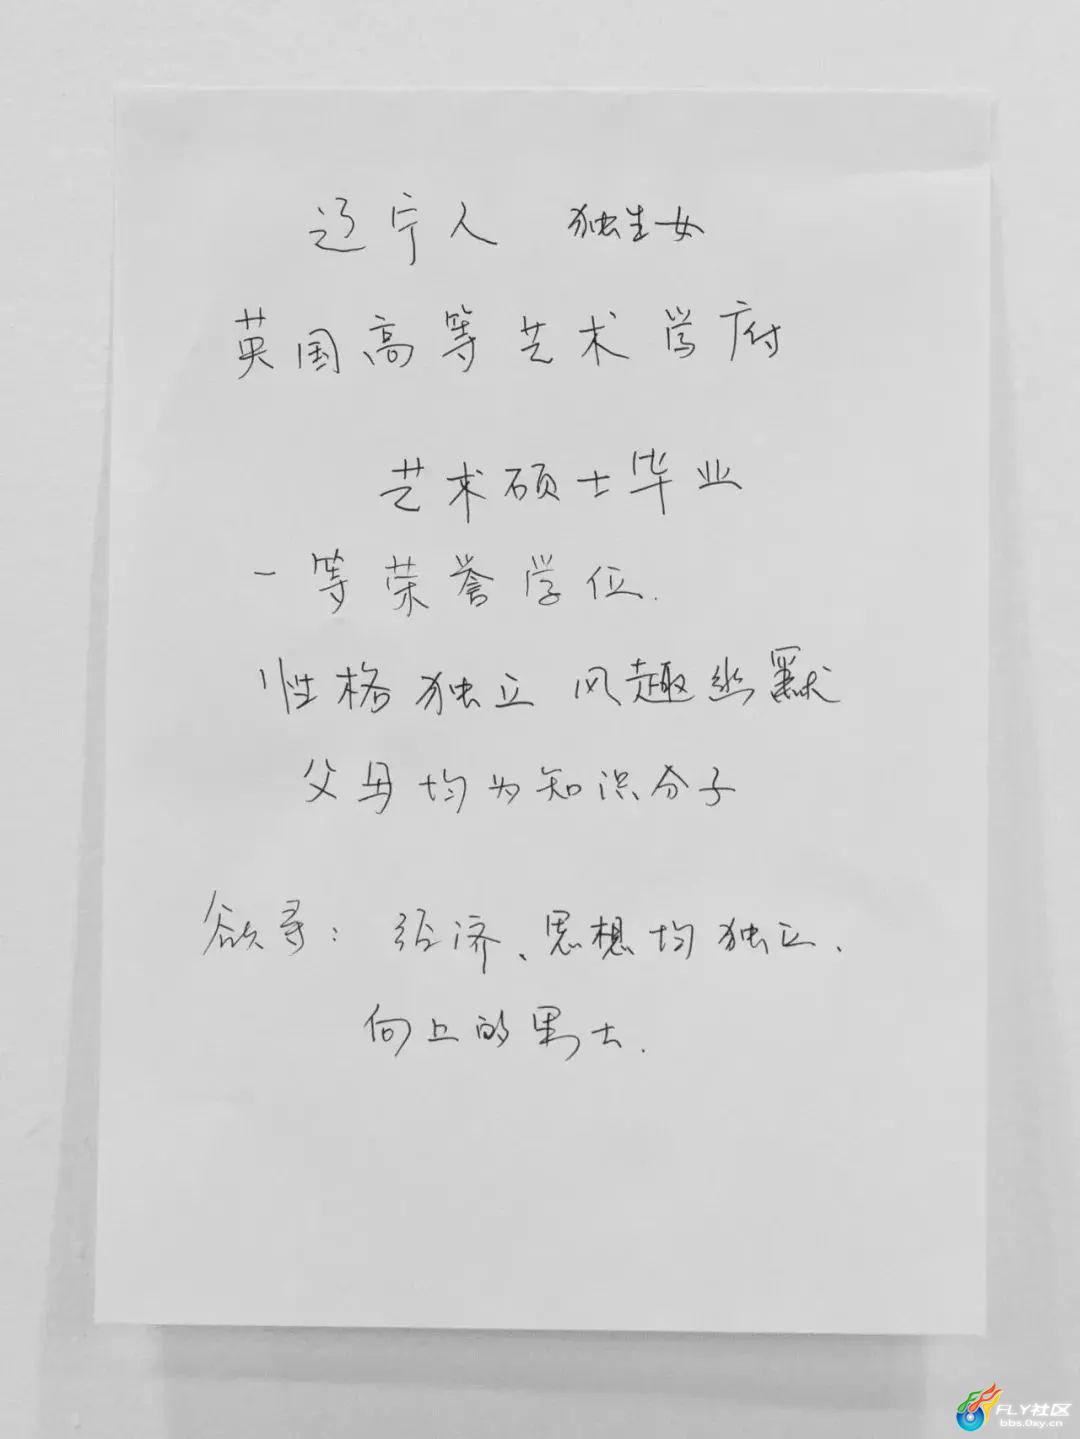 辽宁人 独生女
英国高等艺术学府
艺术硕士毕业
一等荣誉学位.
性格独立 风趣幽默
父母均为知识分子
欲寻: 经济、思想均独立、
向上的男士.
FLY社区
bbs.0xy.cn